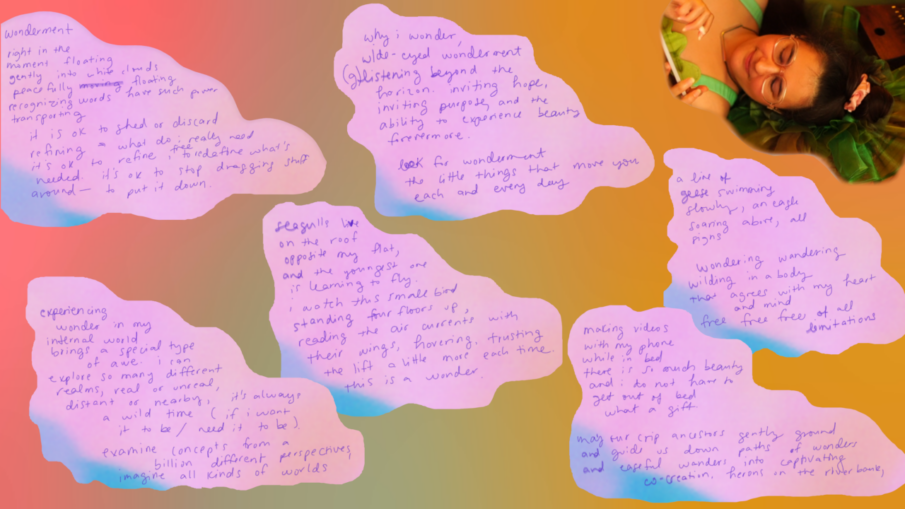 wonderment
right in the
moment floating
gently into white clouds
peacefully floating
recognizing words have such power
transporting
it is ok to shed or discard
refining what do i really need
it's ok to refine, to redefine what's
needed. it's ok to stop dragging stuff
around — to put it down.
why i wonder,
wide-eyed wonderment
(g)listening beyond the
horizon. inviting hope,
inviting purpose, and the
ability to experience beauty
forevermore.
look for wonderment
the little things that move you
each and every day
a line of
geese swimming
slowly, an eagle
soaring above, all
signs
wondering wandering
wilding in a body
that agrees with my heart
and mind
free free free of all
limitations
seagulls live
on the roof
opposite my flat,
and the youngest one
is learning to fly.
i watch this small bird
standing four floors up,
reading the air currents with
their wings, hovering. trusting
the lift a little more each time.
this is a wonder.
experiencing
wonder in my
internal world
brings a special type
of awe. i can
explore so many different
realms, real or unreal,
distant or nearby, it's always
a wild time (if i want
it to be / need it to be)
examine concepts from a
billion different perspectives,
imagine all kinds of worlds
making videos
with my phone
while in bed
there is so much beauty
and i do not have to
get out of bed
what a gift
may our crip ancestors gently ground
and guide us down paths of wonders
and careful wanders into captivating
co-creation, herons on the riverbank,